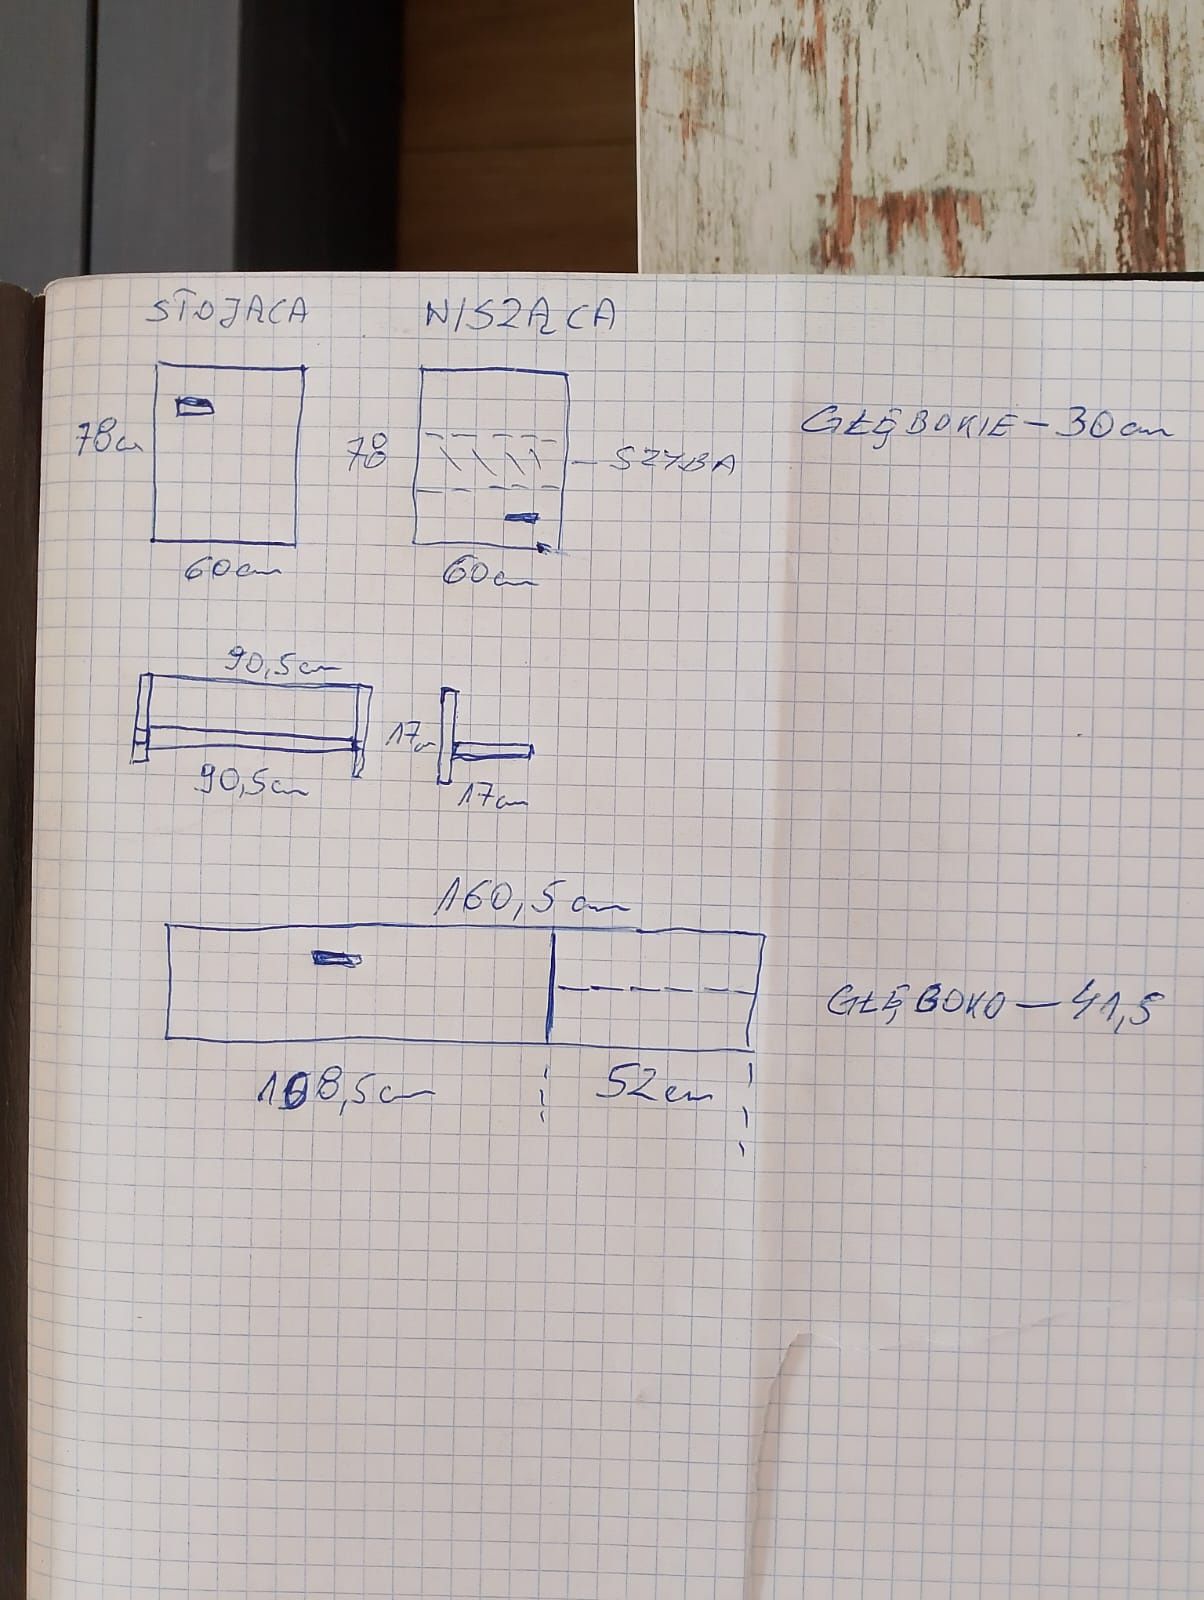 STOJĄCA WISZĄCA
GŁĘBOKIE - 30cm
78cm 78 - SZYBA
60cm 60cm
90,5cm
17cm
90,5cm 17cm
160,5cm
GŁĘBOKO - 41,5
108,5cm 52cm